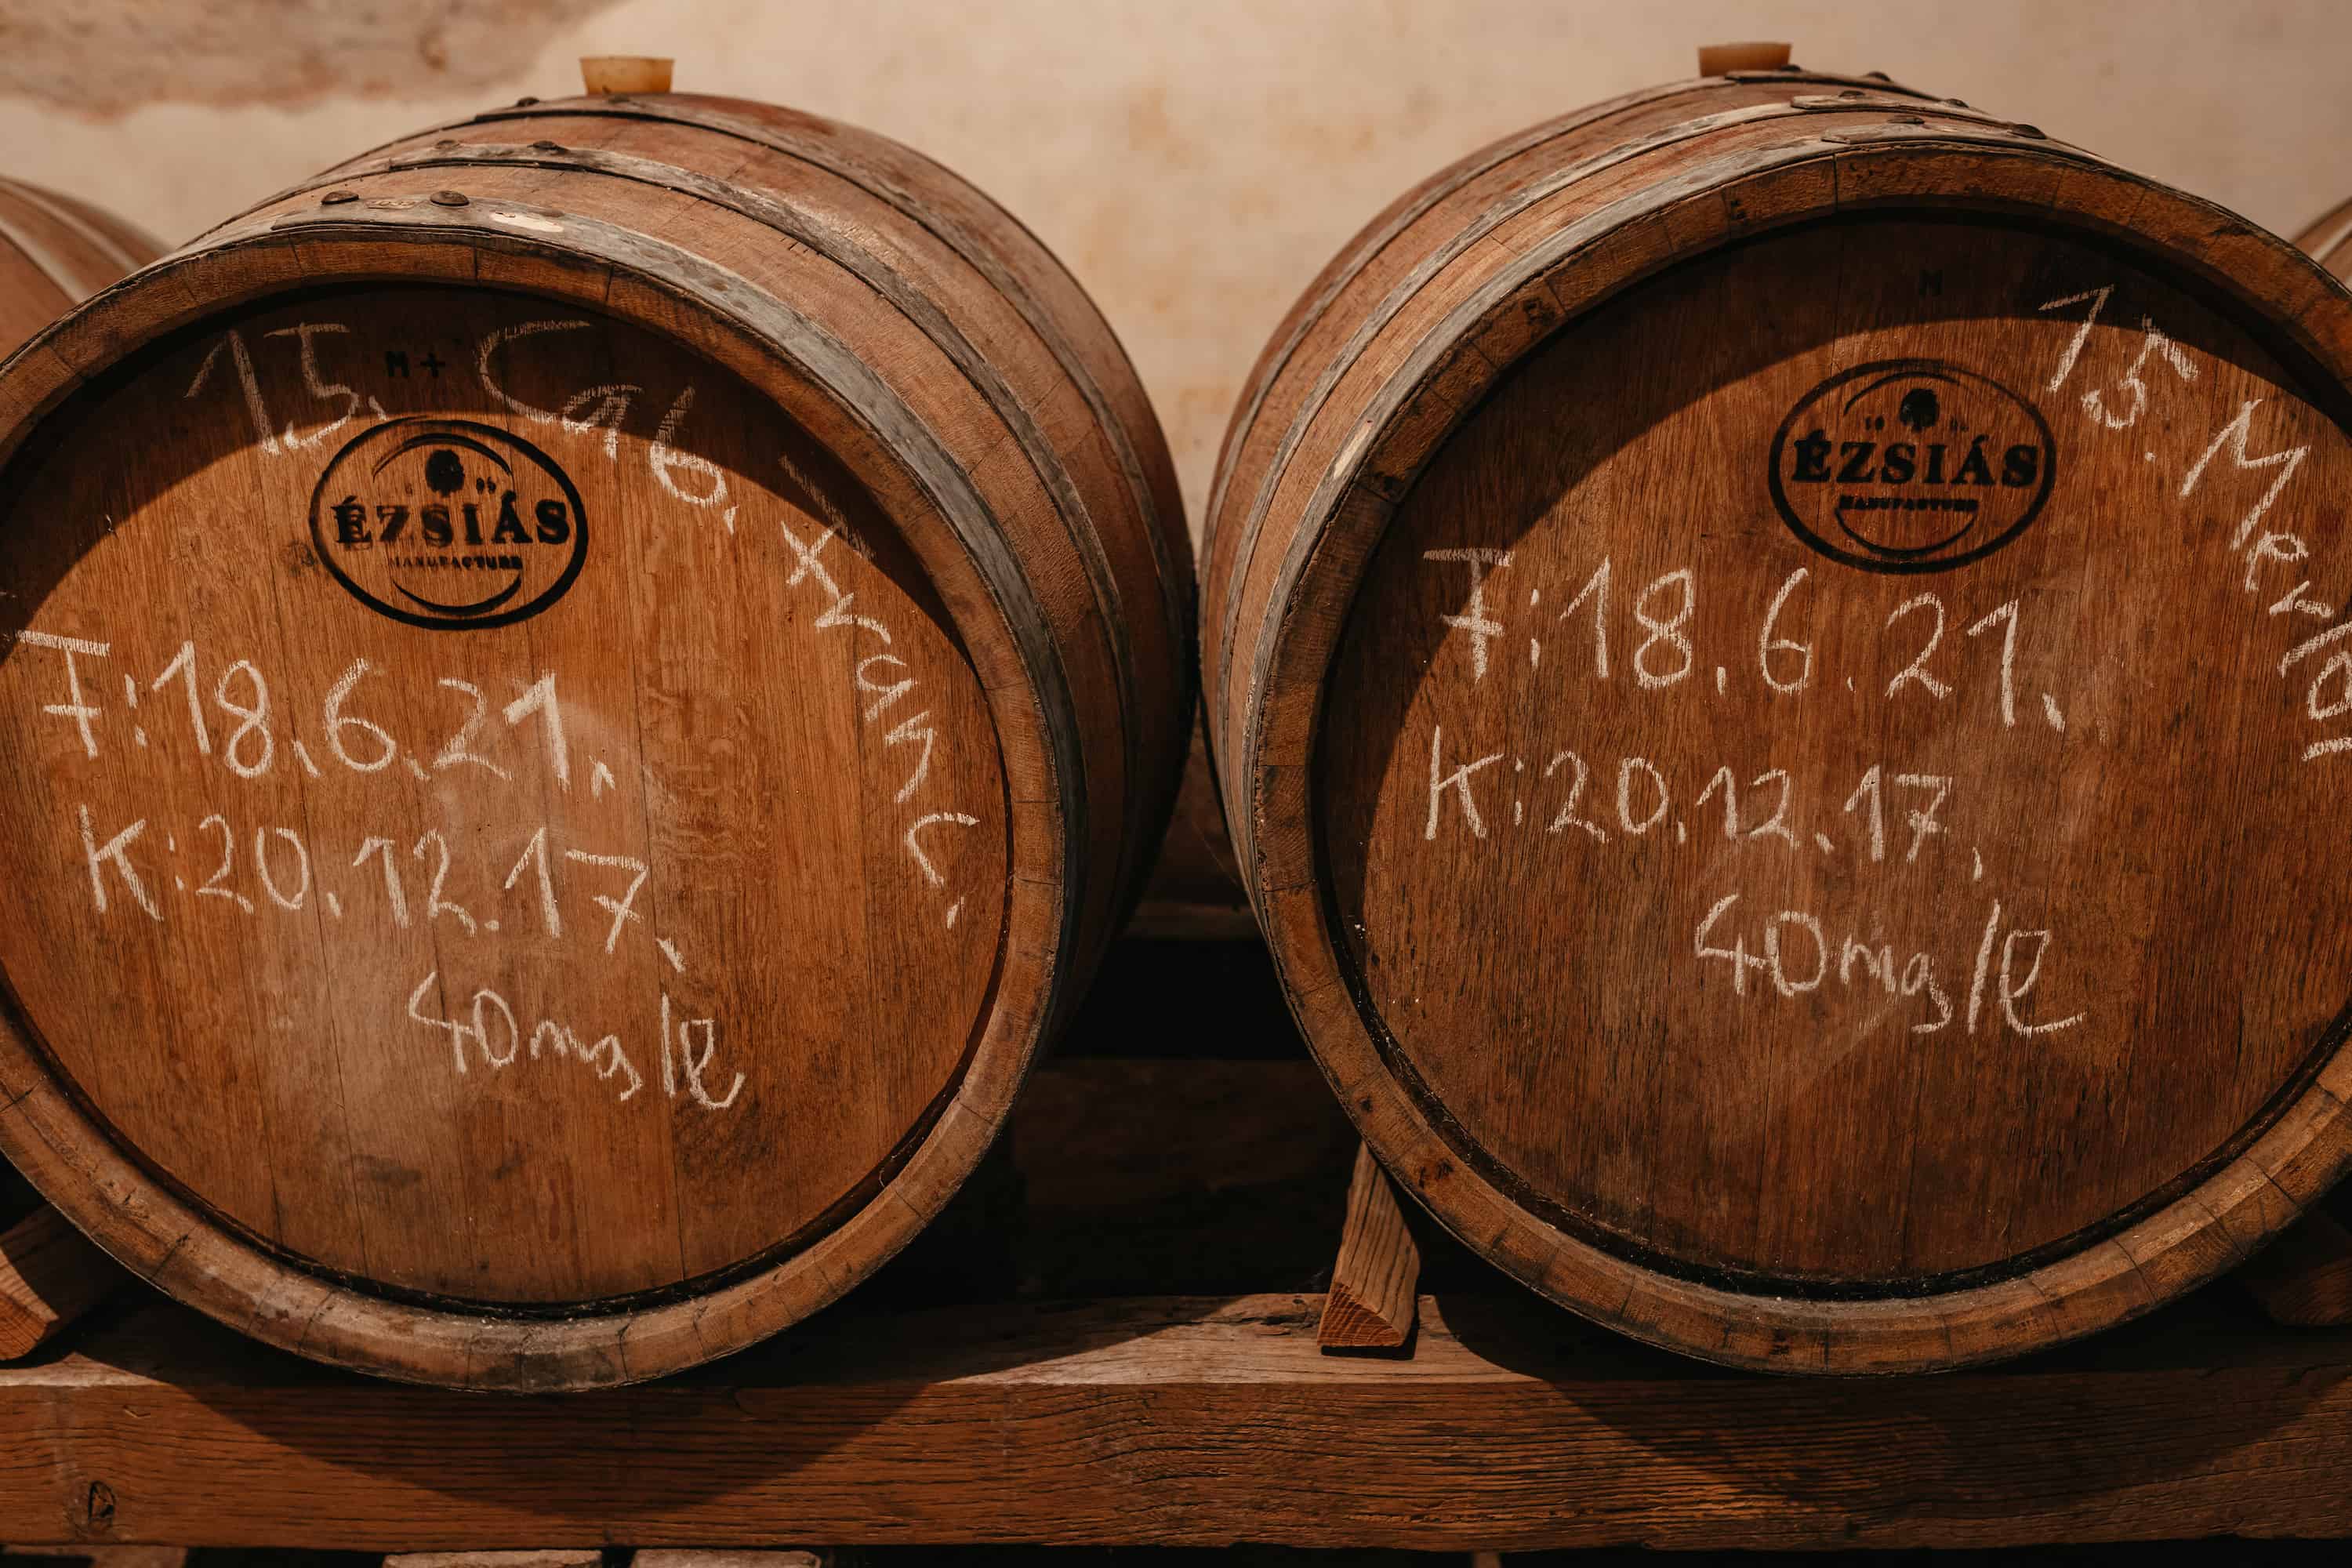 M+
15. Cab. Franc.
ÉZSIÁS
MANUFACTURE
F:18.6.21.
K:20.12.17.
40mg/l
M
15. Merlot
ÉZSIÁS
MANUFACTURE
F:18.6.21.
K:20.12.17.
40mg/l